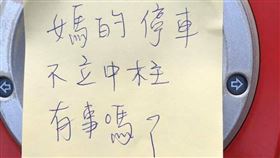 媽的停車
不立中柱
有事嗎